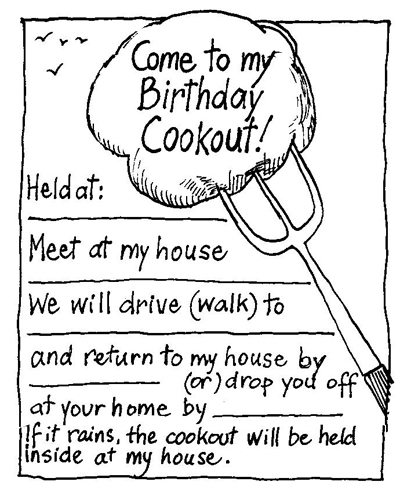 Come to my
Birthday
Cookout!
Held at:
Meet at my house
We will drive (walk) to
and return to my house by
(or) drop you off
at your home by
If it rains, the cookout will be held
inside at my house.